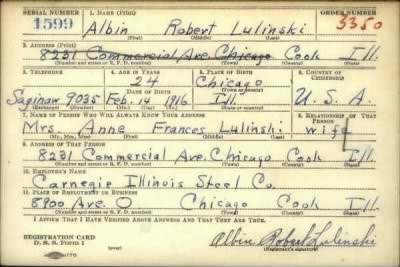 SERIAL NUMBER 1. NAME (Print) ORDER NUMBER
1599 Albin Robert Lulinski 3350
(First) (Middle) (Last)
2. ADDRESS (Print)
8231 Commercial Ave. Chicago Cook Ill.
(Number and street or R. F. D. number) (Town) (County) (State)
3. TELEPHONE 4. AGE IN YEARS 5. PLACE OF BIRTH 6. COUNTRY OF CITIZENSHIP
24 Chicago
DATE OF BIRTH (Town or county)
Saginaw 9035 Feb. 14 1916 Ill. U. S. A.
(Exchange) (Number) (Mo.) (Day) (Yr.) (State or country)
7. NAME OF PERSON WHO WILL ALWAYS KNOW YOUR ADDRESS 8. RELATIONSHIP OF THAT PERSON
Mrs. Anne Frances Lulinski wife
(Mr., Mrs., Miss) (First) (Middle) (Last)
9. ADDRESS OF THAT PERSON
8231 Commercial Ave. Chicago Cook Ill.
(Number and street or R. F. D. number) (Town) (County) (State)
10. EMPLOYER'S NAME
Carnegie Illinois Steel Co.
11. PLACE OF EMPLOYMENT OR BUSINESS
8900 Ave. O Chicago Cook Ill.
(Number and street or R. F. D. number) (Town) (County) (State)
I AFFIRM THAT I HAVE VERIFIED ABOVE ANSWERS AND THAT THEY ARE TRUE.
REGISTRATION CARD
D. S. S. Form 1 Albin Robert Lulinski
(Registrant's signature)